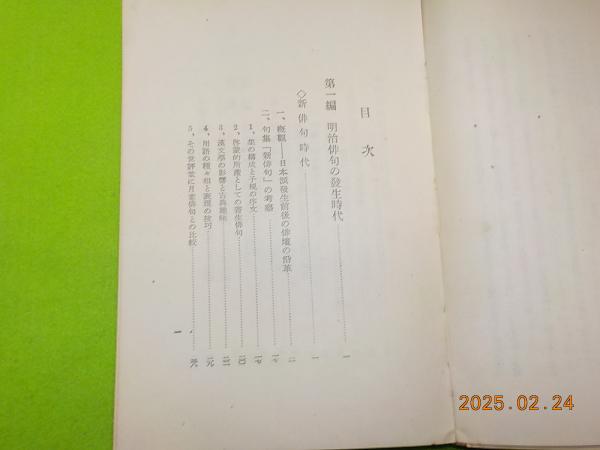 目次
第一編 明治俳句の發生時代……一
◇新俳句時代……一
一、概觀――日本派發生前後の俳壇の沿革……二
二、句集「新俳句」の考察……一七
1、集の構成と子規の序文……一七
2、啓蒙的所產としての寫生俳句……二〇
3、漢文學の影響と古典趣味……二三
4、用語の種々相と表現の技巧……二九
5、その世評並に月並俳句との比較
一
2025.02.24